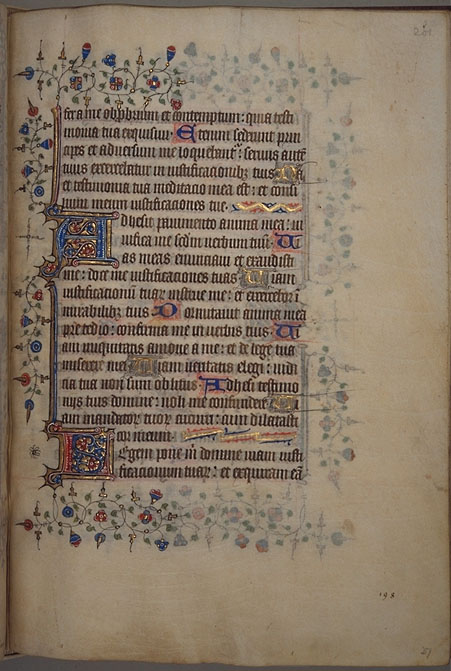 201
fer a me obprobrium et contemptum: quia testi
monia tua exquisiui. Etenim sederunt prin
cipes et aduersum me loquebant̄: seruus aut̄
tuus exercebatur in iustificationibꝫ tuis. Na
et testimonia tua meditacio mea est: et consi
lium meum iustificaciones tue.
Adhesit pauimento anima mea: ui
uifica me sedm̄ uerbum tuū. Ui
as meas enunciaui et exaudisti
me: doce me iustificaciones tuas. Uiam
iustificacionū tuaꝝ instrue me: et exercebor ī
mirabilibꝫ tuis. Dormitauit anima mea
pre tedio: confirma me in uerbis tuis. Ui
am iniquitatis amoue a me: et de lege tua
miserere mei. Uiam ueritatis elegi: iudi
cia tua non sum oblitus. Adhesi testimo
nijs tuis domine: noli me confundere. Ui
am mandatoꝝ tuoꝝ cucurri: cum dilatasti
cor meum.
Legem pone m̄ domine uiam iusti
ficacionum tuaꝝ: et exquiram eā
198